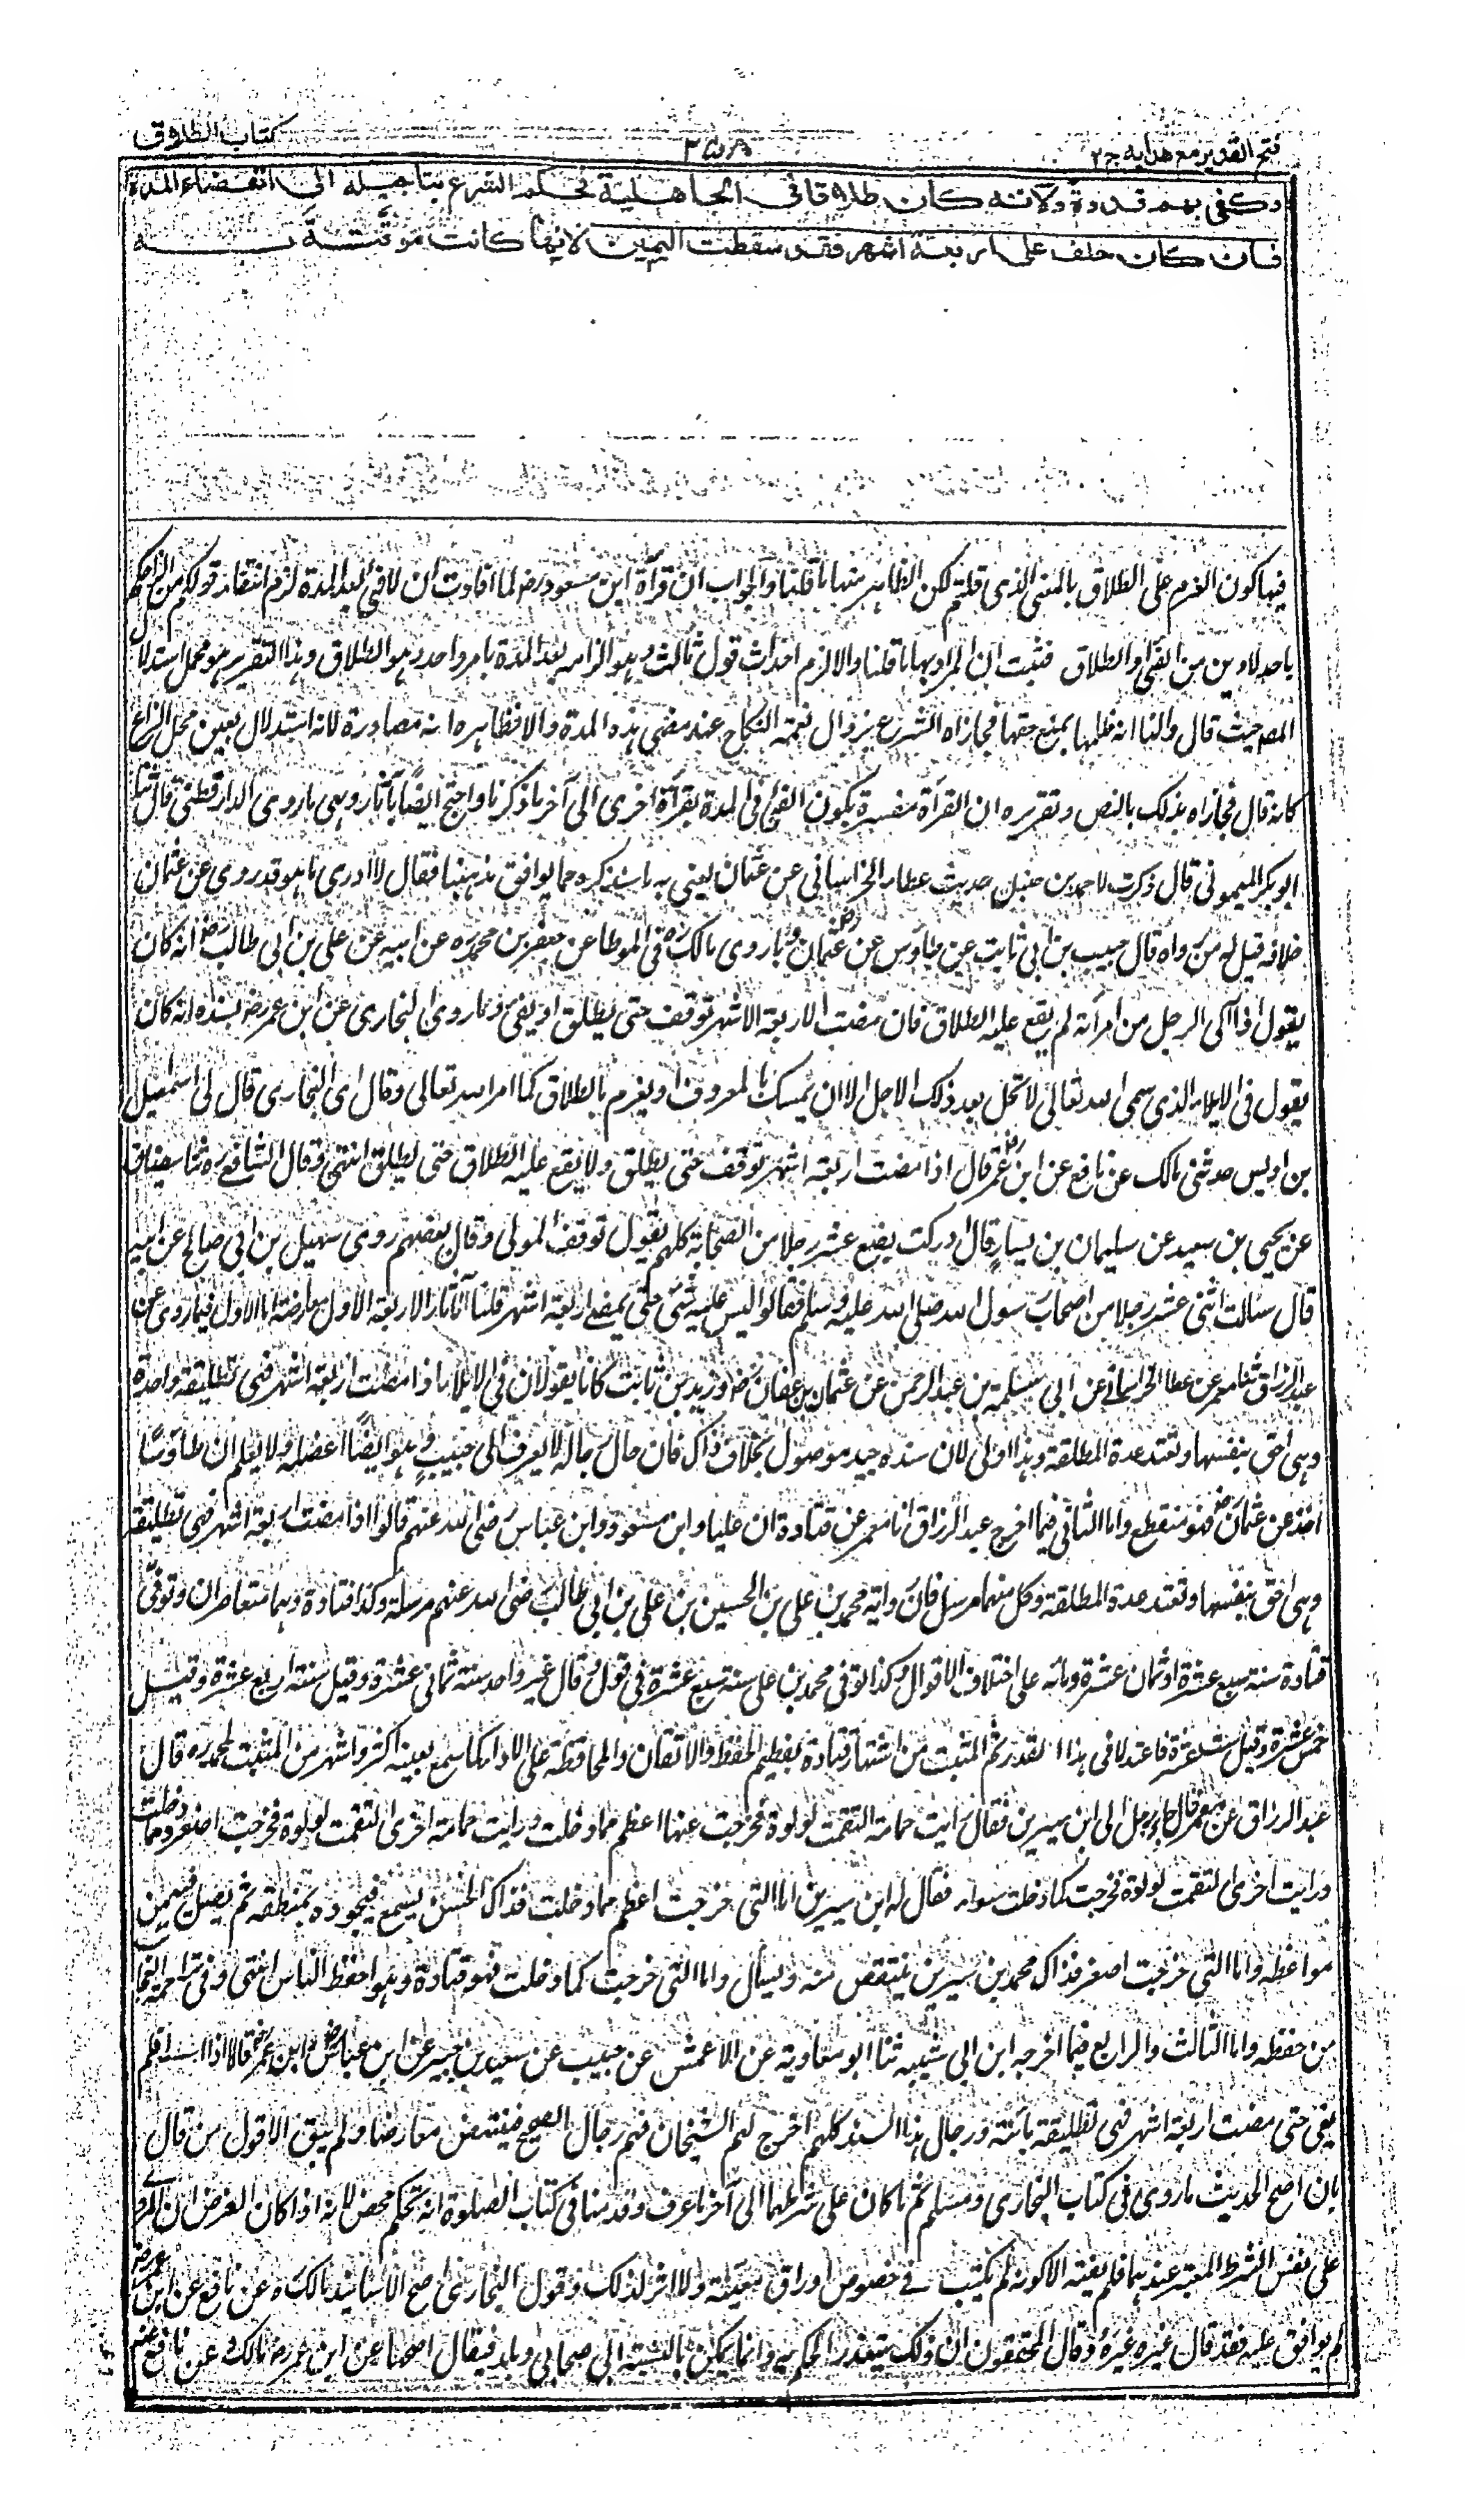 فتح القدير مع هدايه ج٢
كتاب الطلاق
وكفى بهم قدوة ولانه كان طلاقا في الجاهلية فحكم الشرع بتاجيله الى انقضاء المدة
فان كان حلف على اربعة اشهر فقد سقطت اليمين لانها كانت موقتة به
فيها كون العزم على الطلاق بالمعنى الذى قلتم لكن الظاهر منها ما قلنا والجواب ان قرأة ابن مسعود رض لما افادت ان لا فئ بعد المدة لزم انتفاء قولكم من التراخى
باحد الامرين من الفئ والطلاق فثبت ان المراد بها ما قلنا والا لزم احداث قول ثالث وهو الزامه بعد المدة بامر واحد وهو الطلاق وهذا التقرير هو محمل استدلال
المصـ حيث قال ولنا انه ظلمها بمنع حقها فجازاه الشرع بزوال نعمة النكاح عند مضى هذه المدة والا فظاهره انه مصادرة لانه استدلال بعين محل النزاع
كانه قال فجازاه بذلك بالنص وتقريره ان القرأة مفسرة بكون الفئ فى المدة بقرأة اخرى الى آخر ما ذكرنا واحتج ايضًا بآثار وهى ما روى الدارقطنى قال ثنا
ابو بكر الميمونى قال ذكرت لاحمد بن حنبل حديث عطاء الخراسانى عن عثمان يعنى به ما سنذكره مما يوافق مذهبنا فقال لا ادرى ما هو قد روى عن عثمان
خلافه قيل له من رواه قال حبيب بن ابى ثابت عن طاؤس عن عثمان وما روى مالك ره فى الموطا عن جعفر بن محمد ره عن ابيه عن على بن ابى طالب رض انه كان
يقول اذا آلى الرجل من امرأته لم يقع عليه الطلاق فان مضت الاربعة الاشهر توقف حتى يطلق او يفئ وما روى البخارى عن ابن عمر رض بسنده انه كان
يقول فى الايلاء الذى سمى الله تعالى لا تحل بعد ذلك الاجل الا ان يمسك بالمعروف او يعزم بالطلاق كما امر الله تعالى وقال اى البخارى قال لى اسمعيل
بن اويس حدثنى مالك عن نافع عن ابن عمر رض قال اذا مضت اربعة اشهر توقف حتى يطلق ولا يقع عليه الطلاق حتى يطلق انتهى وقال الشافعے ره ثنا سفيان
عن يحيى بن سعيد عن سليمان بن يسار قال ادركت بضع عشر رجلا من الصحابة كلهم يقول توقف المولى وقال بعضهم روى سهيل بن ابى صالح عن ابيه
قال سئالت اثنى عشر رجلا من اصحاب رسول الله صلى الله عليه وسلم فقالوا ليس عليه شئ حتى يمضے اربعة اشهر قلنا الآثار الاربعة الاول معارضة اما الاول فبما روى عن
عبد الرزاق ثنا معمر عن عطا الخراسانے عن ابى سلمة بن عبد الرحمن عن عثمان بن عفان رض وزيد بن ثابت كانا يقولان فى الايلاء اذا مضت اربعة اشهر فهى تطليقة واحدة
وهى احق بنفسها وتعتد عدة المطلقة وهذا اولى لان سنده جيد موصول بخلاف ذاك فان حال رجاله لا يعرف الى حبيب وهو ايضًا اعضله ولا يعلم ان طاؤسًا
اخذ عن عثمان رض فهو منقطع واما الثانى فبما اخرج عبد الرزاق انا معمر عن قتادة ان عليا وابن مسعود وابن عباس رضى الله عنهم قالوا اذا مضت اربعة اشهر فهى تطليقة
وهى احق بنفسها وتعتد عدة المطلقة وكل منهما مرسل فان رواية محمد بن على بن الحسين بن على بن ابى طالب رضى الله عنهم مرسلة وكذا قتادة وهما متعاصران وتوفى
قتادة سنة سبع عشرة او ثمان عشرة ومائه على اختلاف الاقوال وكذا توفى محمد بن على سنة سبع عشرة فى قول وقال غير واحد سنة ثمانى عشرة وقيل سنة اربع عشرة وقيل
خمس عشرة وقيل ست عشرة فاعتدلا فى هذا القدر ثم المثبت من اشتهار قتادة بعظيم الحفظ والاتقان والمحافظة على الاداء كما سمع بعينه اكثر واشهر من المثبت لمحمد ره قال
عبد الرزاق عن معمر قال جاء رجل الى ابن سيرين فقال رايت حمامة التقمت لولوة فخرجت عنها اعظم مما دخلت ورايت حمامة اخرى التقمت لولوة فخرجت اصغر مما دخلت
ورايت اخرى التقمت لولوة فخرجت كما دخلت سواء فقال له ابن سيرين اما التى خرجت اعظم مما دخلت فذاك الحسن يسمع فيجوده بمنطقه ثم يصل فيه من
مواعظه واما التى خرجت اصغر فذاك محمد بن سيرين ينتقص منه ويسال واما التى خرجت كما دخلت فهو قتادة وهو احفظ الناس انتهى
من حفظه واما الثالث والرابع فبما اخرجه ابن ابى شيبه ثنا ابو معاوية عن الاعمش عن حبيب عن سعيد بن جبير عن ابن عباس رض وابن عمر رض قالا اذا آلى فلم
يفئ حتى مضت اربعة اشهر فهى تطليقة بائنة ورجال هذا السند كلهم اخرج لهم الشيخان فهم رجال الصحيح فينتهض معارضا ولم يبق الا قول من قال
بان اصح الحديث ما روى فى كتاب البخارى ومسلم ثم ما كان على شرطهما الى آخر ما عرف وقدمنا فى كتاب الصلوة انه تحكم محض لانه اذا كان الغرض ان المروى
على نفس الشرط المعتبر عندهما فلم يفته الا كونه لم يكتب فے خصوص اوراق معينة ولا اثر لذلك وقول البخارى اصح الاسانيد مالك ره عن نافع عن ابن عمر رض
لم يوافق عليه فقد قال غيره غيره وقال المحققون ان ذلك يتعذر الحكم به وانما يمكن بالنسبة الى صحابى وبلد فيقال اصحها عن ابن عمر رض مالك ره عن نافع عنه